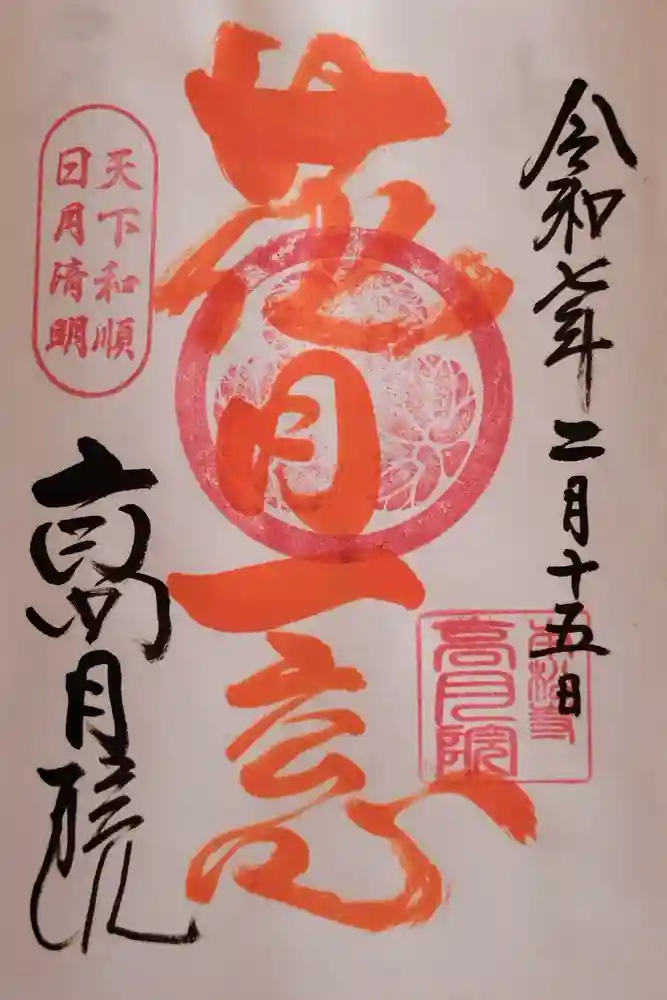 令和七年二月十五日
花月一窓
天下和順
日月清明
高月院
高月院